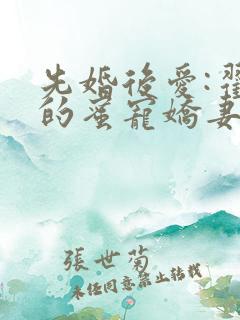 先婚後愛:
的蜜寵嬌妻
張世菊
未經同意禁止轉載